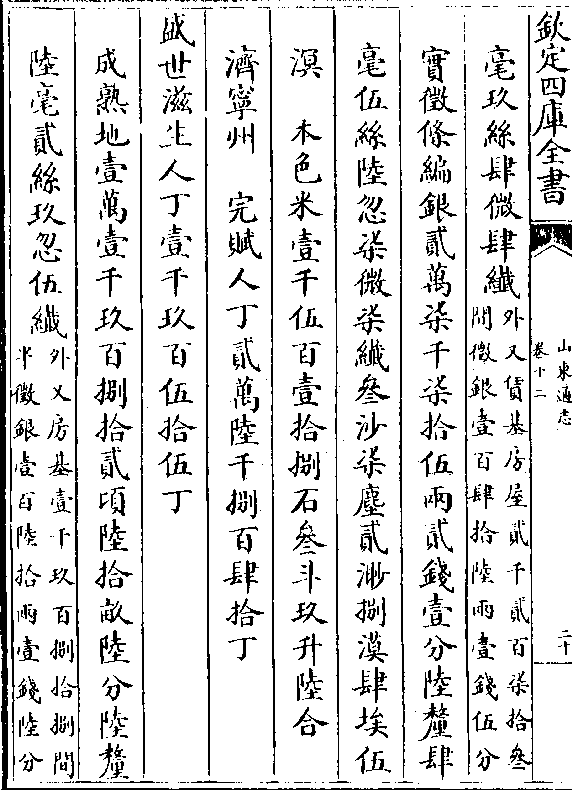 欽定四庫全書
山東通志
卷十二
二十
毫玖絲肆微肆纖外又賃基房屋貳千貳百柒拾叄
間徵銀壹百肆拾陸兩壹錢伍分
實徵條編銀貳萬柒千柒拾伍兩貳錢壹分陸釐肆
毫伍絲陸忽柒微柒纖叄沙柒塵貳渺捌漠肆埃伍
溟　本色米壹千伍百壹拾捌石叄斗玖升陸合
濟寧州　完賦人丁貳萬陸千捌百肆拾丁
盛世滋生人丁壹千玖百伍拾伍丁
成熟地壹萬壹千玖百捌拾貳頃陸拾畝陸分陸釐
陸毫貳絲玖忽伍纖外又房基壹千玖百捌拾捌間
半徵銀壹百陸拾兩壹錢陸分